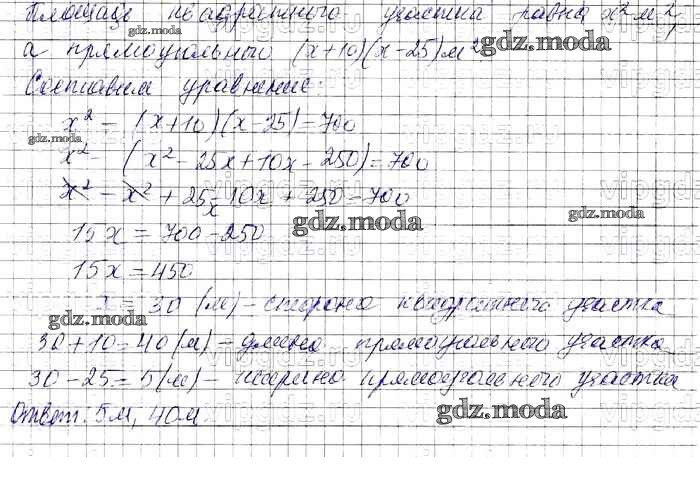 Площадь квадратного участка равна x² м²,
а прямоугольного (x+10)(x-25) м²
Составим уравнение:
x² - (x+10)(x-25)=700
x² - (x² - 25x+10x - 250)=700
x² - x² + 25x - 10x + 250 = 700
15x = 700 - 250
15x = 450
x = 30 (м) - сторона квадратного участка
30+10 = 40 (м) - длина прямоугольного участка
30 - 25 = 5 (м) - ширина прямоугольного участка
Ответ: 5м, 40м
gdz.moda
vipgdz.ru